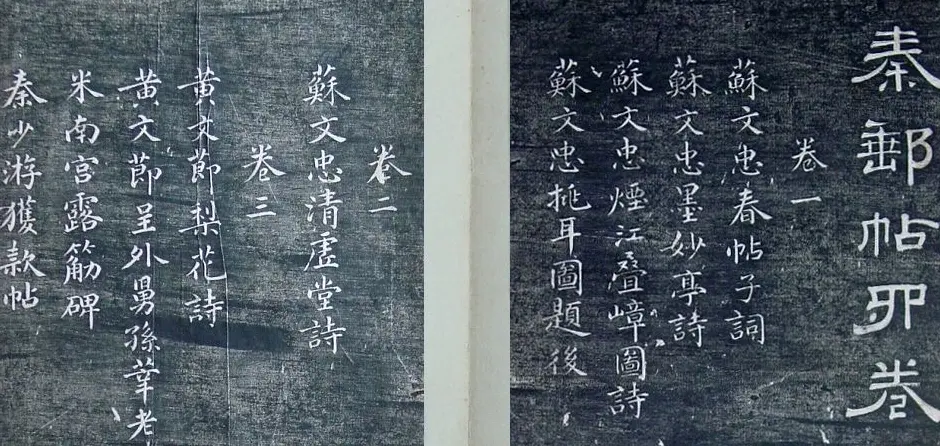 秦郵帖四卷
卷一
蘇文忠春帖子詞
蘇文忠墨妙亭詩
蘇文忠煙江疊嶂圖詩
蘇文忠挑耳圖題後
卷二
蘇文忠清虛堂詩
卷三
黃文節梨花詩
黃文節呈外舅孫莘老
米南宮露筋碑
秦少游獲款帖